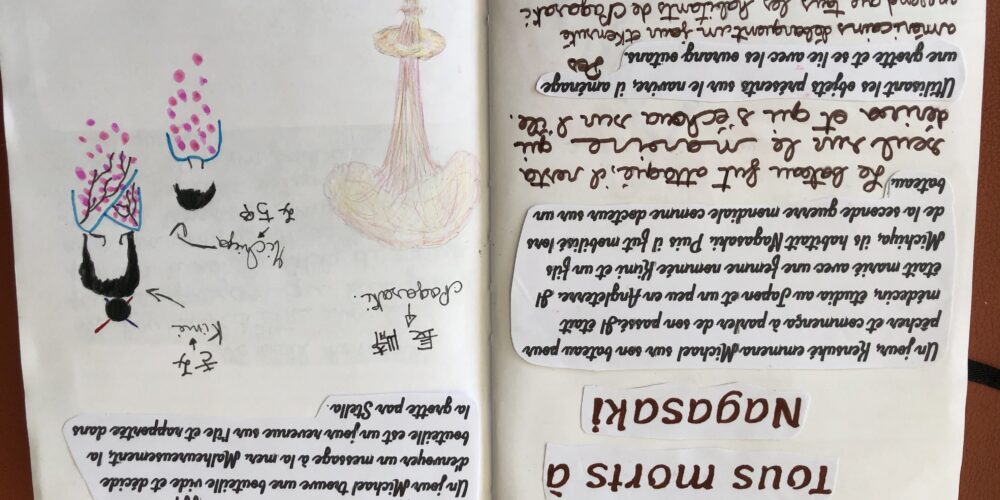 Tous morts à
Nagasaki
Un jour, Kensuké emmena Michael sur son bateau pour
pêcher et commença à parler de son passé. Il était
médecin, étudia au Japon et un peu en Angleterre. Il
était marié avec une femme nommée Kimi et un fils
Michiya, ils habitait Nagasaki. Puis il fut mobilisé lors
de la seconde guerre mondiale comme docteur sur un
bateau.
Le bateau fut attaqué, il resta
seul sur le qui
dériva et qui s'échoua sur l'île.
Utilisant les objets présents sur le navire, il aménage
une grotte et se lie avec les ourang outans. Des
américains débarquant un jour et Kensuké
apprend que tous les habitants de Nagasaki
Un jour Michael trouve une bouteille vide et décide
d'envoyer un message à la mer. Malheureusement, la
bouteille est un jour revenue sur l'île et rapportée dans
la grotte par Stella.
長崎
Nagasaki
きみ
Kimi
Michiya